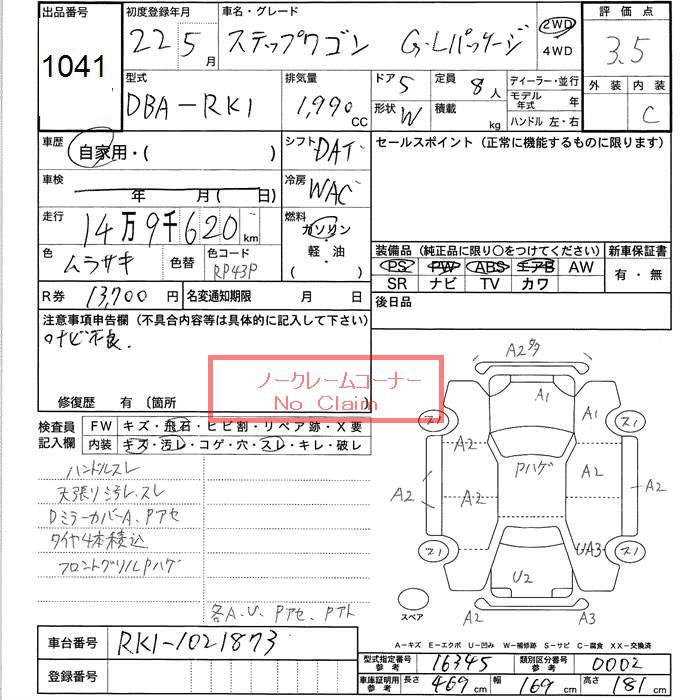 出品番号 初度登録年月 車名・グレード 2WD 評価点
1041 22 5月 ステップワゴン G-Lパッケージ 4WD 3.5
型式 排気量 ドア 5 定員 8人 ディーラー・並行 外装 内装
DBA-RK1 1,990 CC 形状 W 積載 kg モデル年式 年 C
ハンドル 左・右
車歴 自家用・( ) シフト DAT セールスポイント (正常に機能するものに限ります)
車検 年 月 ( 日) 冷房 WAC
走行 14万9千620 km 燃料 ガソリン・軽・油 ( )
色 ムラサキ 色替 色コード RP43P
装備品 (純正品に限り○をつけてください) 新車保証書
PS PW ABS エアB AW 有・無
SR ナビ TV カワ
R券 13,700円 名変通知期限 月 日 後日品
注意事項申告欄 (不具合内容等は具体的に記入して下さい)
ナビ不良.
ノークレームコーナー
No Claim
修復歴 有 (箇所
検査員記入欄 FW キズ・飛石・ヒビ割・リペア跡・X要
内装 キズ・汚レ・コゲ・穴・スレ・キレ・破レ
ハンドルスレ
天張リ汚レ、スレ
DミラーカバーA、Pアセ
タイヤ4本積込
フロントグリルPハゲ
各A、U、Pアセ、Pアト
A2
A1 A1
ス1 ス1
A2 PハゲA2 A2
A2 A2
ス1 UA3 ス1
U2
スペア A2 A3
A-キズ E-エクボ U-凹み W-補修跡 S-サビ C-腐食 XX-交換済
車台番号 RK1-1021873
型式指定番号 参考 16345 類別区分番号 参考 0002
登録番号 車庫証明用 参考 長さ 469cm 幅 169cm 高さ 181cm